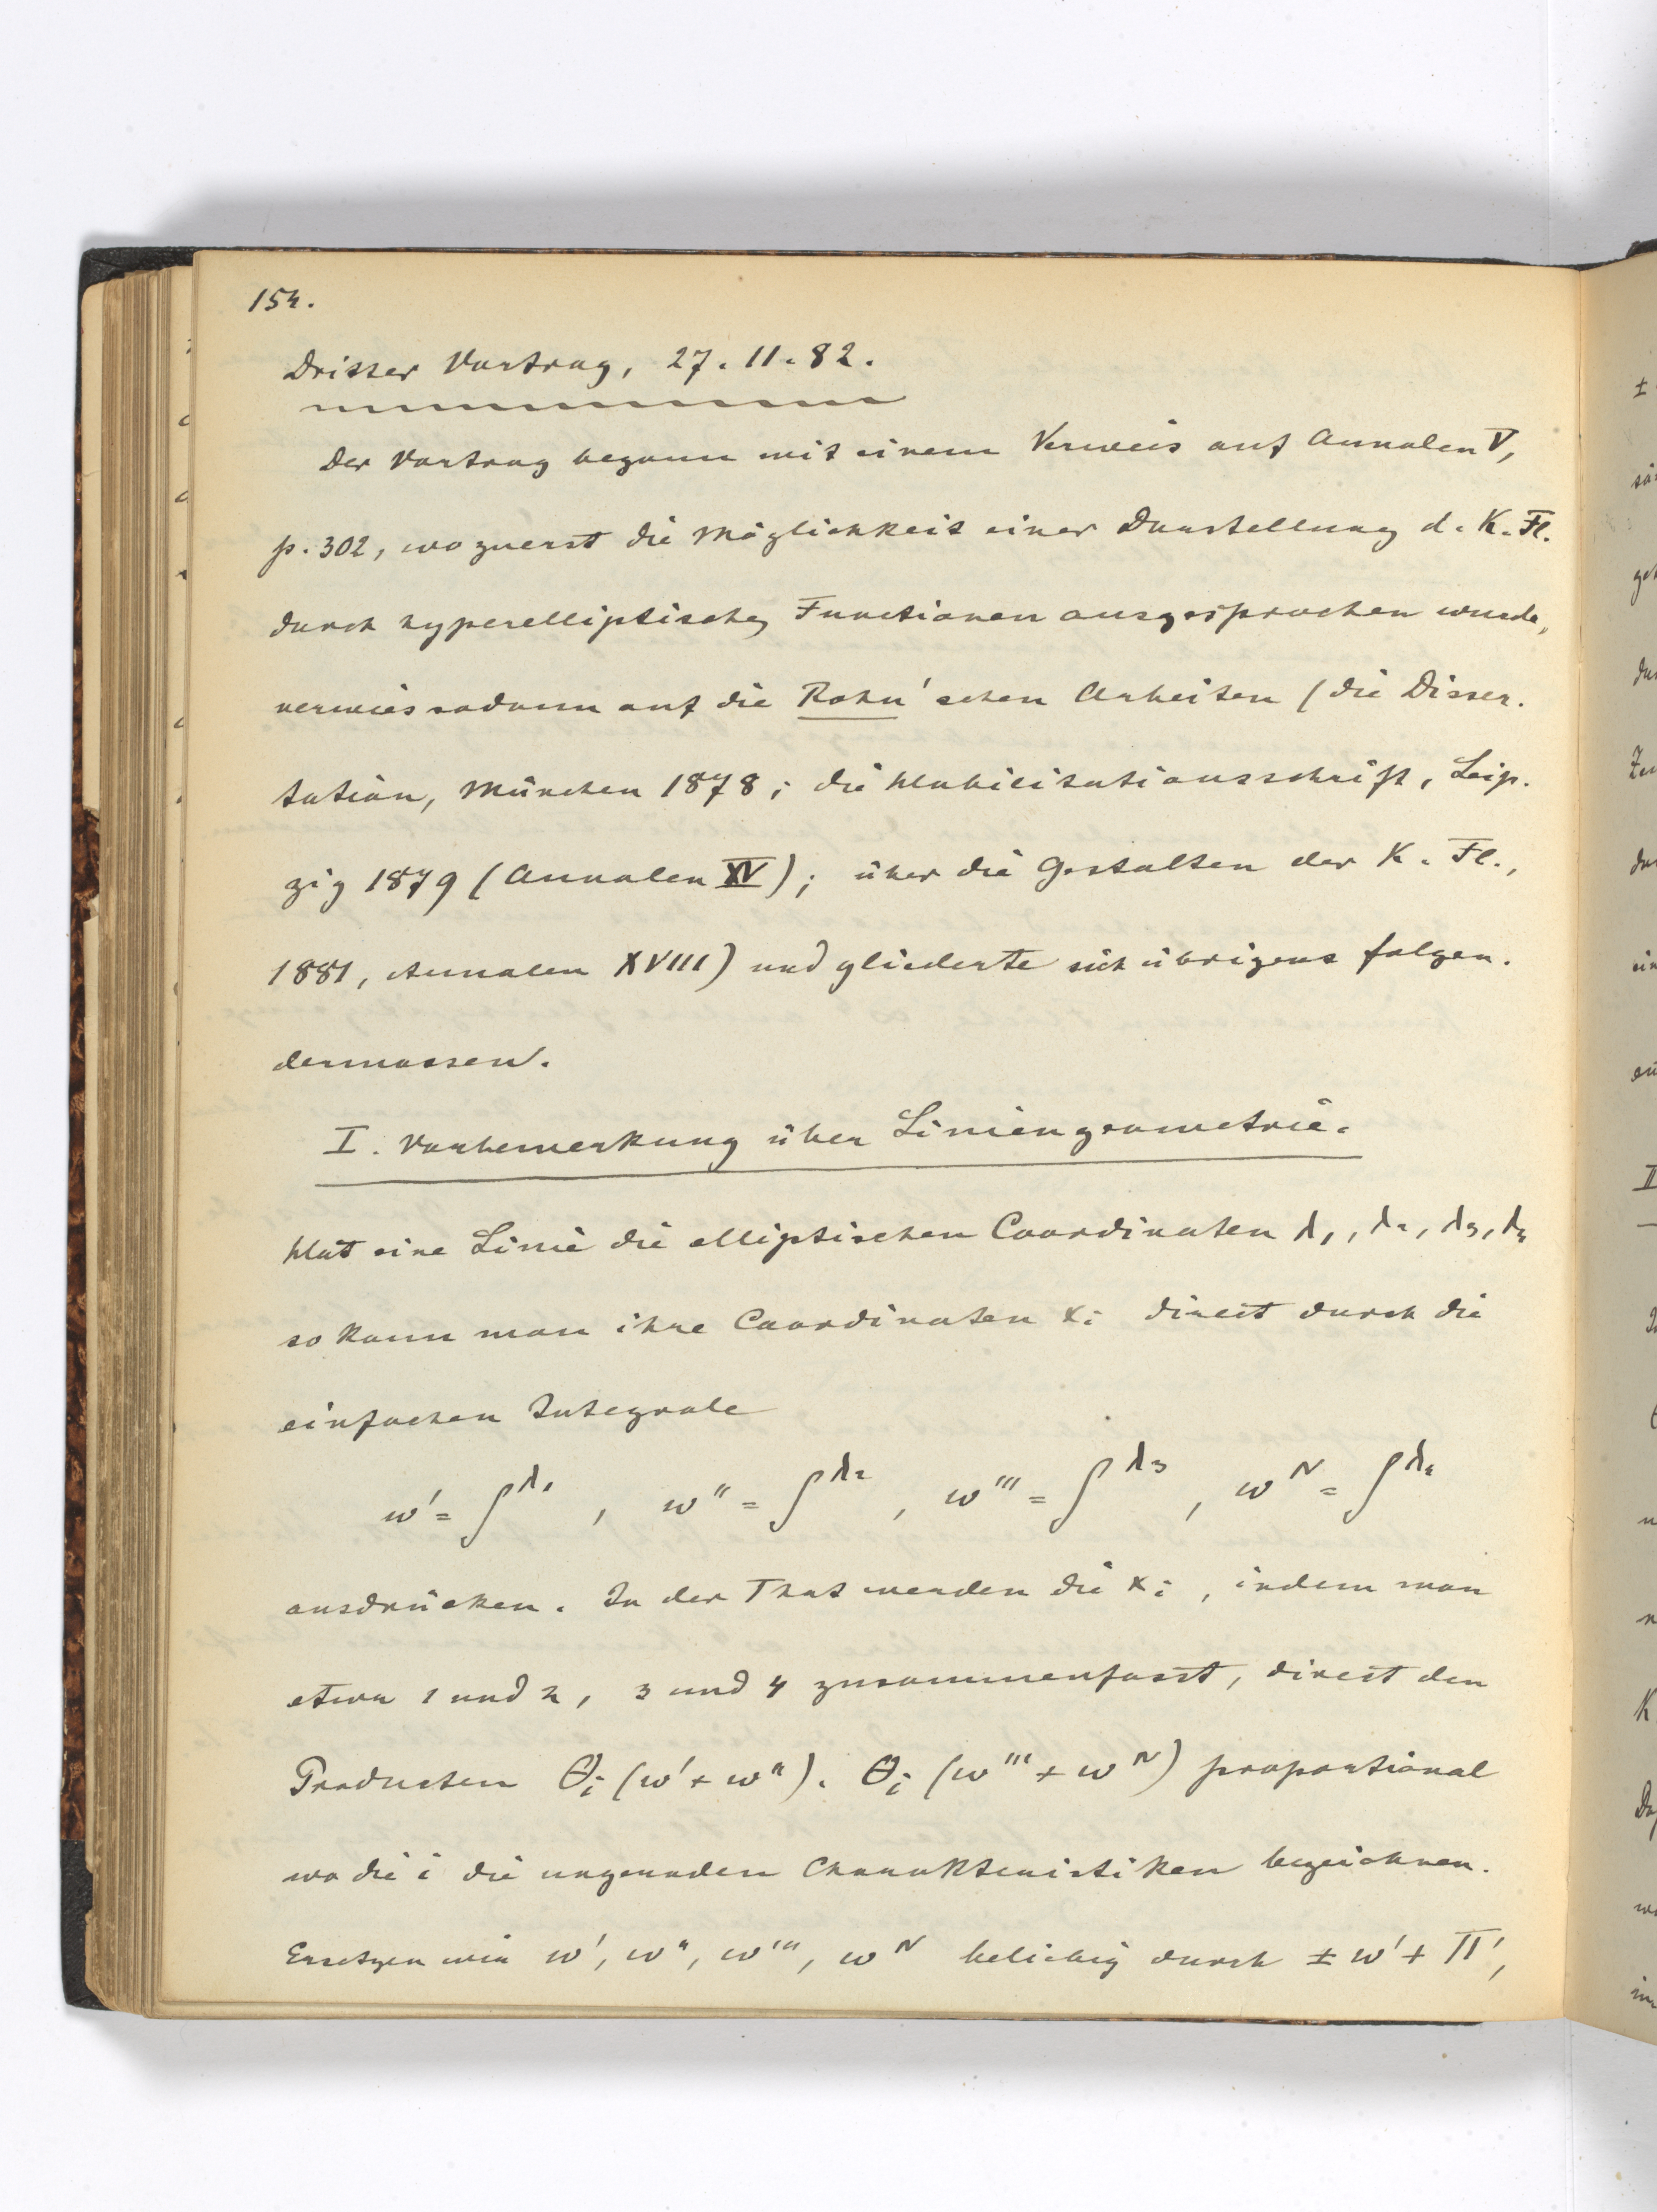 154.
Dritter Vortrag, 27. 11. 82.
Der Vortrag begann mit einem Verweis auf Annalen V,
p. 302, wo zuerst die Möglichkeit einer Darstellung d. K. Fl.
durch hyperelliptische Functionen ausgesprochen wurde,
verwies sodann auf die Rohn'schen Arbeiten (die Disser.
tation, München 1878; die Habilitationsschrift, Leip.
zig 1879 (Annalen XV); über die Gestalten der K. Fl.,
1881, Annalen XVIII) und gliederte sich übrigens folgen.
dermassen.
I. Vorbemerkung über Liniengeometrie.
Hat eine Linie die elliptischen Coordinaten λ1, λ2, λ3, λ4
so kann man ihre Coordinaten xi direct durch die
einfachen Integrale
w' = ∫^λ1 , w'' = ∫^λ2 , w''' = ∫^λ3 , w^IV = ∫^λ4
ausdrücken. In der That werden die xi , indem man
etwa 1 und 2, 3 und 4 zusammenfasst, direct den
Producten Θi (w' + w''). Θi (w''' + w^IV) proportional
wo die i die ungeraden Charakteristiken bezeichnen.
Ersetzen wir w', w'', w''', w^IV beliebig durch ± w' + Π',